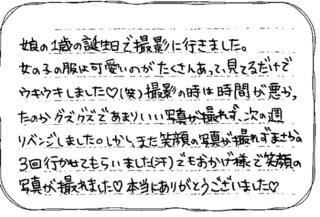 娘の1歳の誕生日で撮影に行きました。
女の子の服は可愛いのがたくさんあって、見てるだけで
ウキウキしました♡(笑)撮影の時は時間が悪かっ
たのかグズグズであまりいい写真が撮れず、次の週
リベンジしました。しかし、また笑顔の写真が撮れずまさかの
3回行かせてもらいました(汗)でもおかげ様で笑顔の
写真が撮れました♡本当にありがとうございました♡